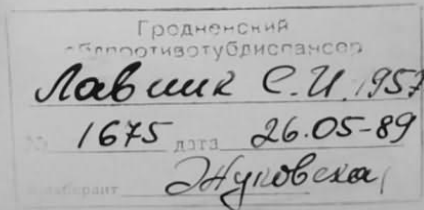 Гродненский
облпротивотубдиспансер
Лавник С.И. 1957
№ 1675 дата 26.05-89
лаборант Жуковская